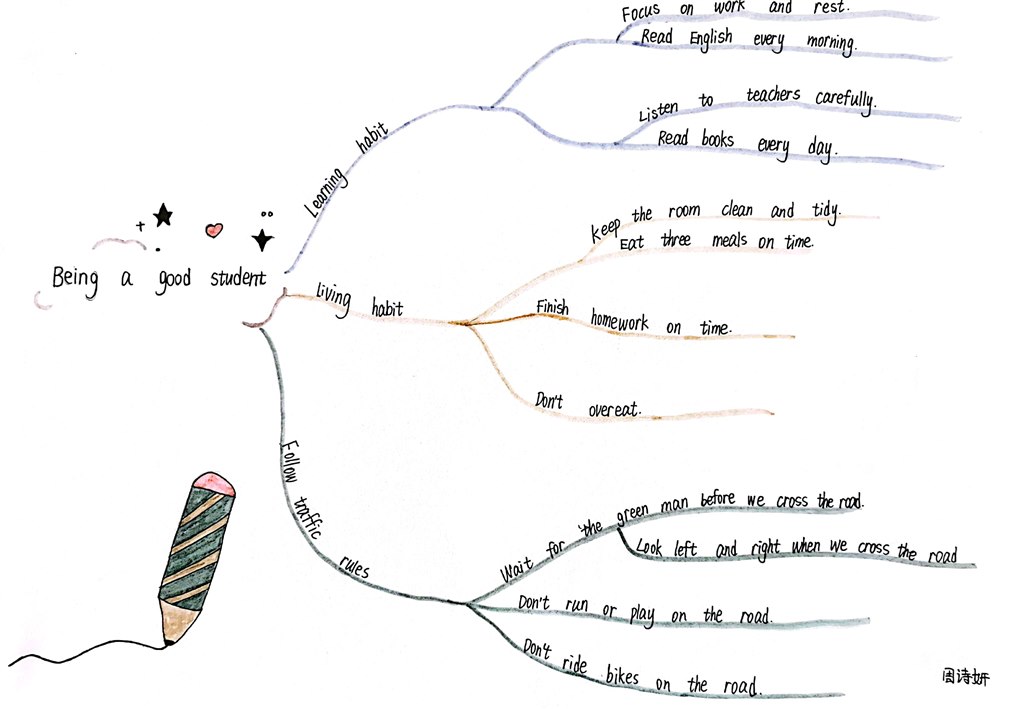 Focus on work and rest.
Read English every morning.
Listen to teachers carefully.
Read books every day.
Learning habit
Being a good student
Keep the room clean and tidy.
Eat three meals on time.
living habit
Finish homework on time.
Don't overeat.
Follow traffic rules
Wait for the green man before we cross the road.
Look left and right when we cross the road
Don't run or play on the road.
Don't ride bikes on the road.
周诗妍